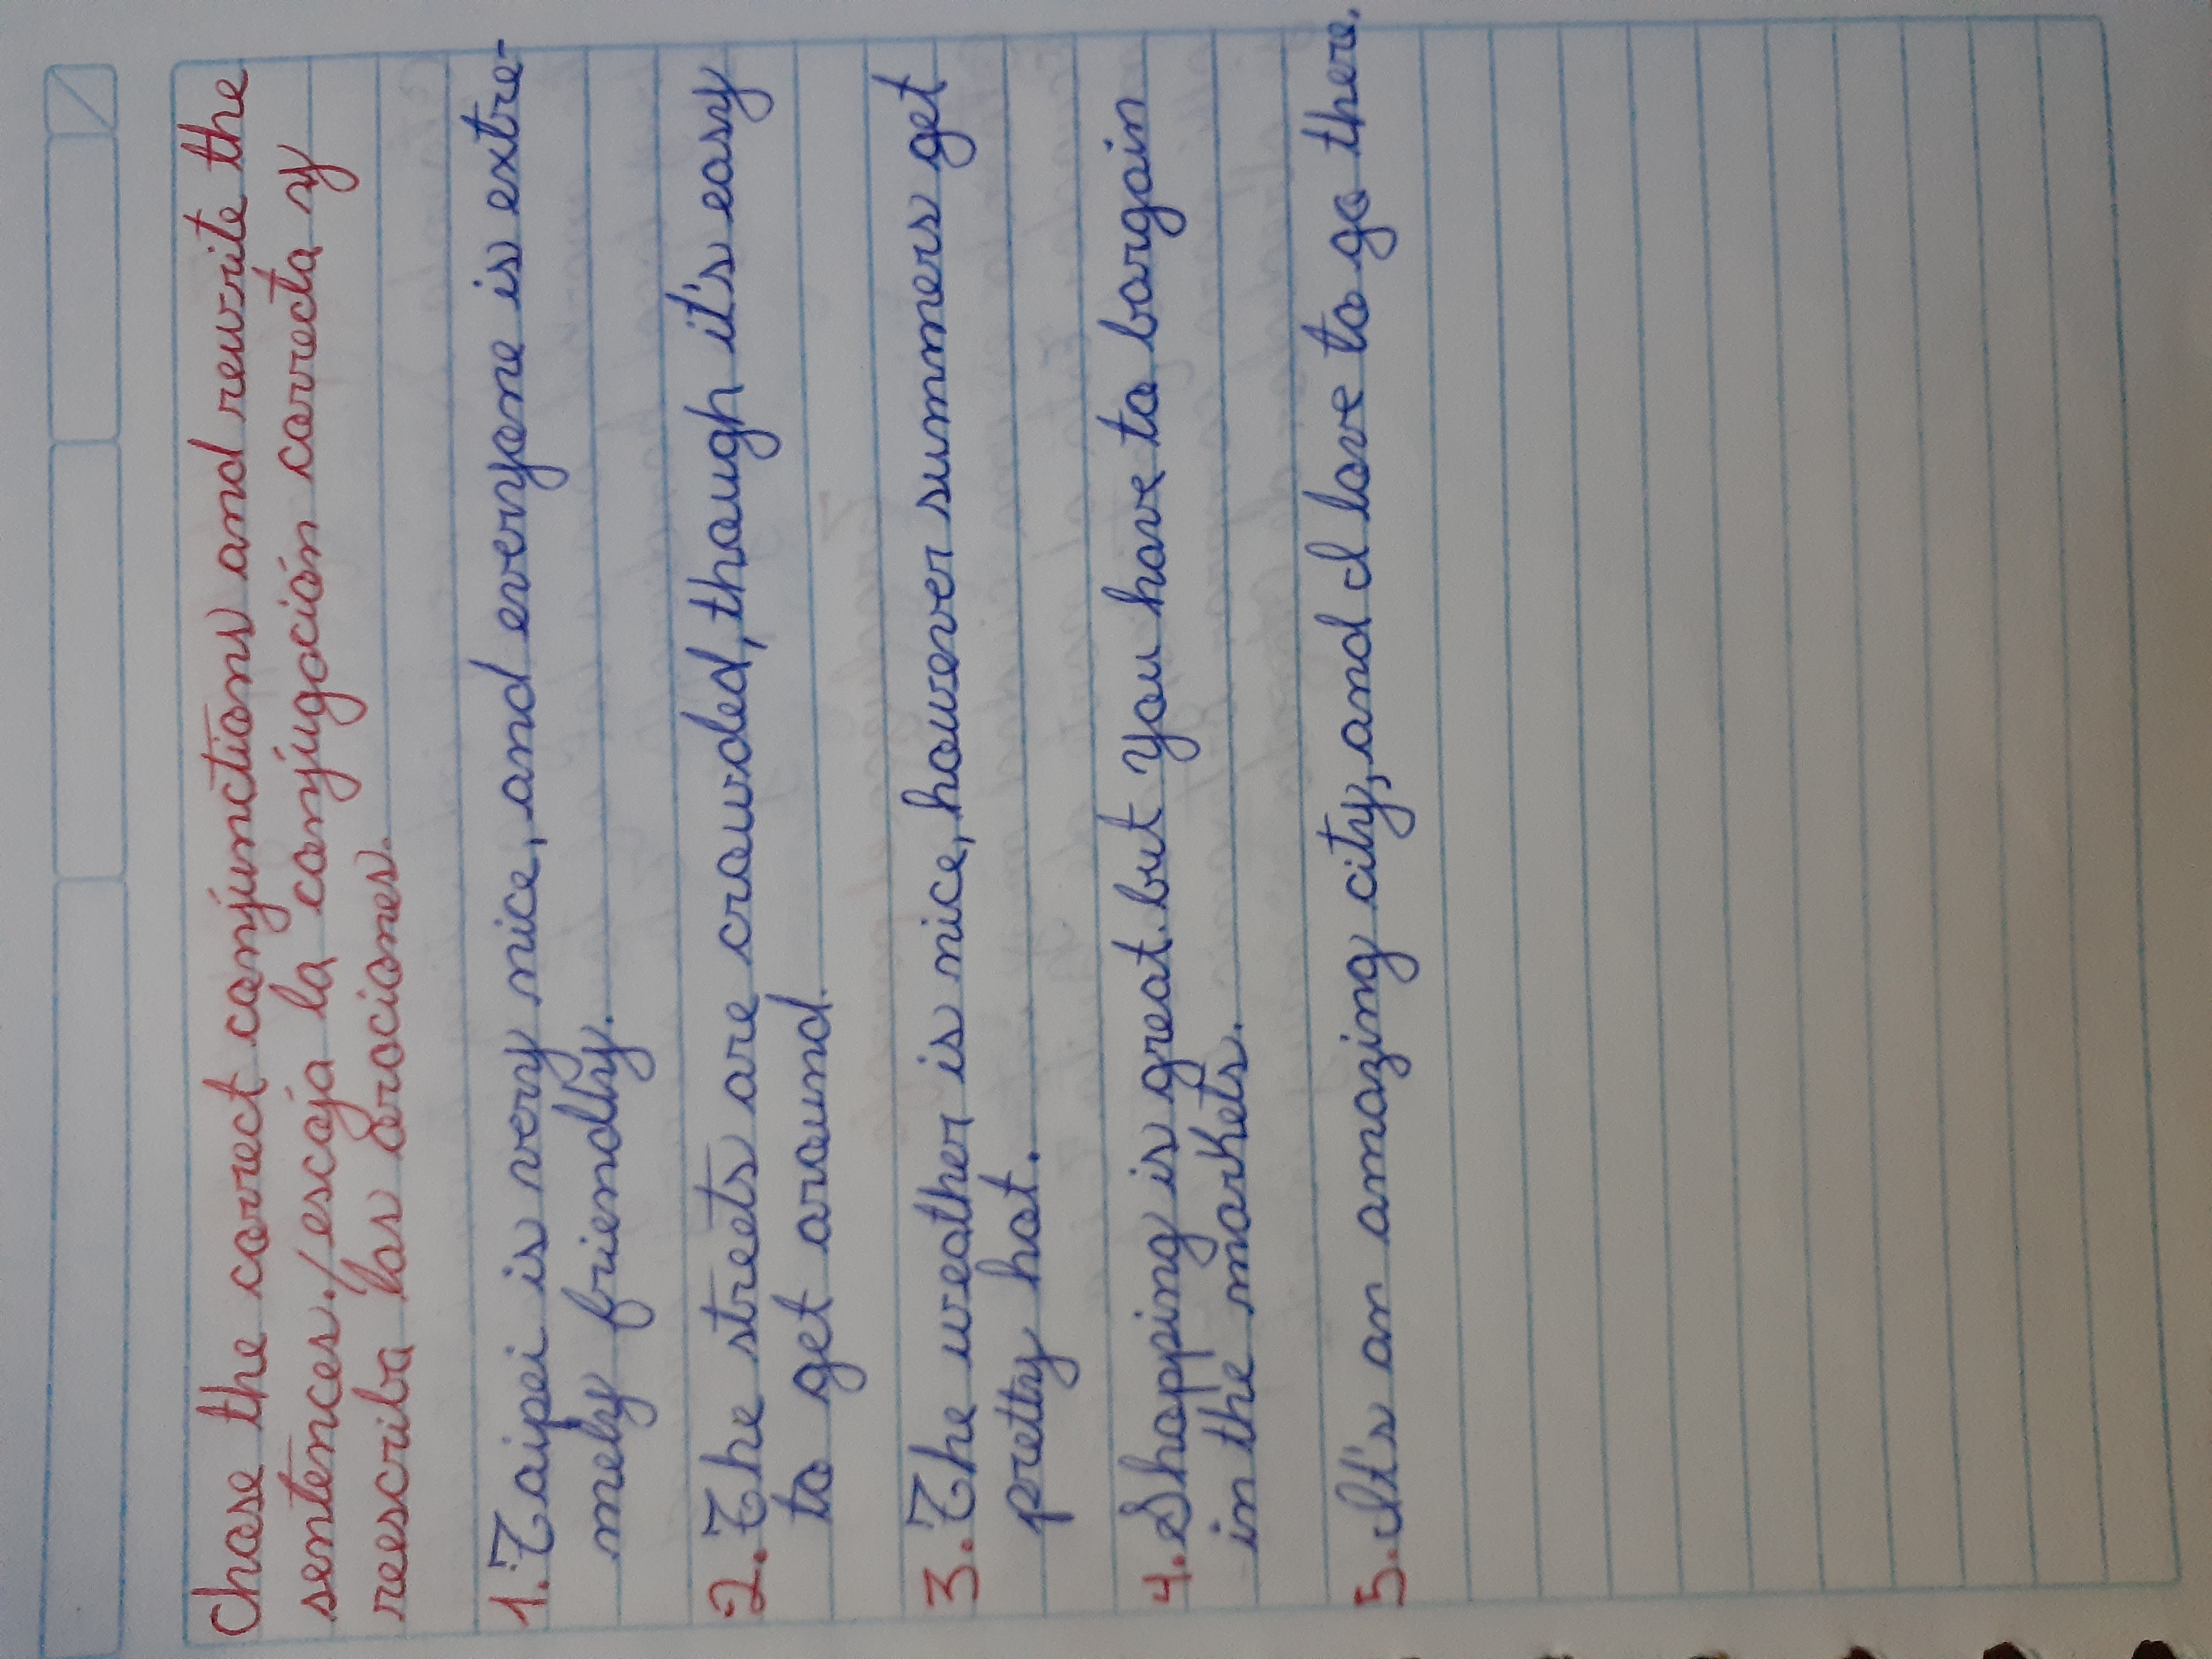 Chose the correct conjunctions and rewrite the
sentences./escoja la conjugación correcta y
reescriba las oraciones.
1. Taipei is very nice, and everyone is extre-
mely friendly.
2. The streets are crowded, though it's easy
to get around.
3. The weather is nice, however summers get
pretty hot.
4. Shopping is great. but You have to bargain
in the markets.
5. It's an amazing city, and I love to go there.